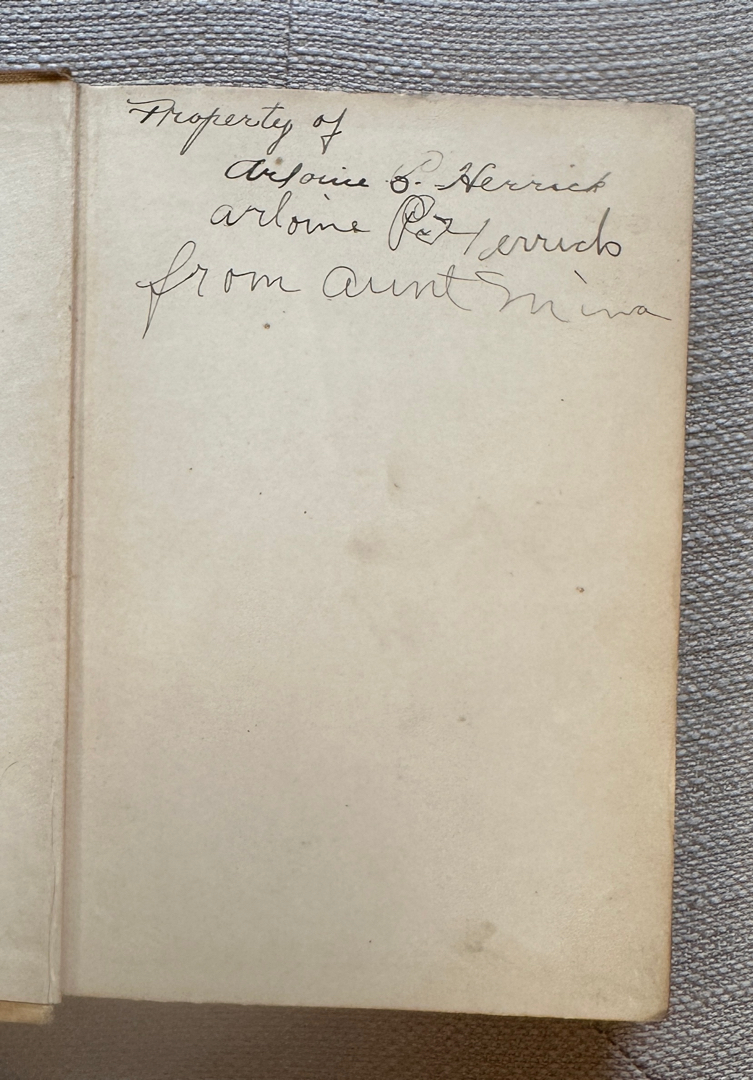 Property of
Arloine P. Herrick
arloine Herrick
from aunt Mina